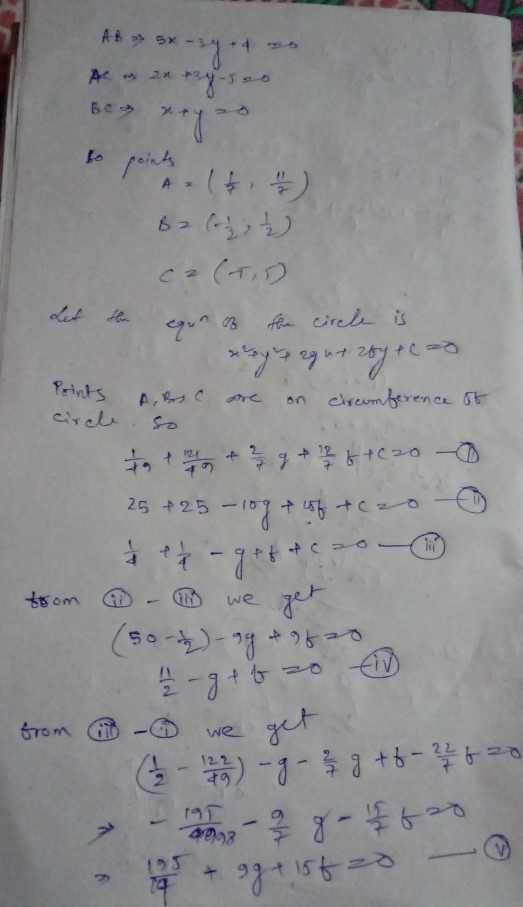 AB ⇒ 5x - 3y + 4 = 0
AC ⇒ 2x + 3y - 5 = 0
BC ⇒ x + y = 0
So points
A = (1/7, 11/7)
B = (-1/2, 1/2)
C = (-5, 5)
Let the equⁿ of the circle is
x² + y² + 2gx + 2fy + c = 0
Points A, B, C are on circumference of
circle. So
1/49 + 121/49 + 2/7 g + 22/7 f + c = 0 — (i)
25 + 25 - 10g + 10f + c = 0 — (ii)
1/4 + 1/4 - g + f + c = 0 — (iii)
from (ii) - (iii) we get
(50 - 1/2) - 9g + 9f = 0
11/2 - g + f = 0 — (iv)
from (iii) - (i) we get
(1/2 - 122/49) - g - 2/7 g + f - 22/7 f = 0
⇒ - 195/98 - 9/7 g - 15/7 f = 0
⇒ 195/14 + 9g + 15f = 0 — (v)